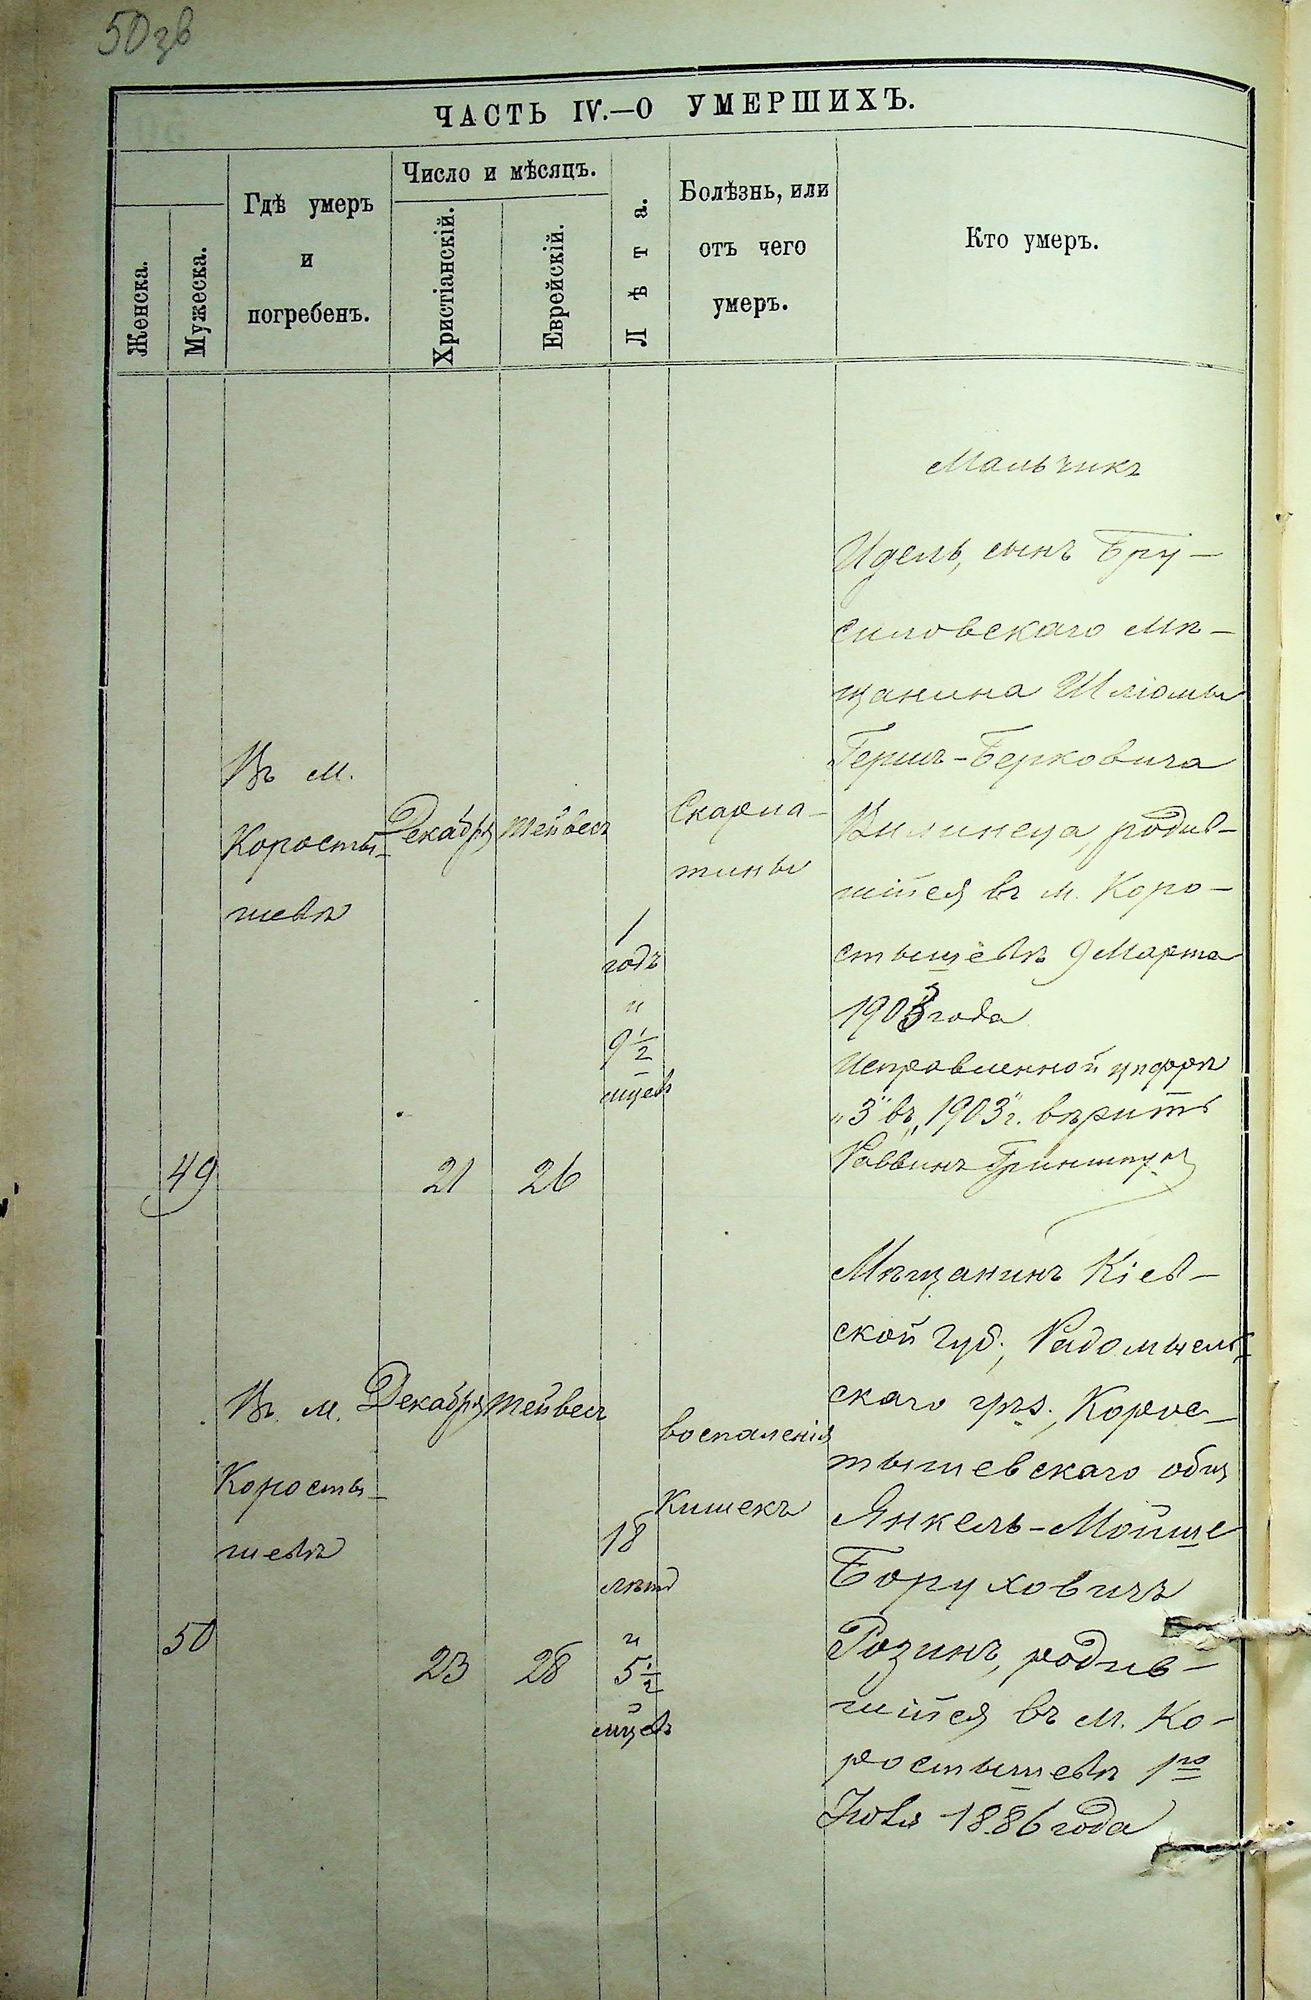 50зв
ЧАСТЬ IV.—О УМЕРШИХЪ.
Женска.
Мужеска.
Гдѣ умеръ
и
погребенъ.
Число и мѣсяцъ.
Христіанскій.
Еврейскій.
Лѣта.
Болѣзнь, или
отъ чего
умеръ.
Кто умеръ.
49
Въ м.
Коросты-
шевѣ
Декабря
21
Тейвесъ
26
1
годъ
и
9½
мцевъ
Скарла-
тины
Мальчикъ
Идель, сынъ Бру-
силовскаго мѣ-
щанина Шліомы
Гершъ-Берковича
Вилинеца, родив-
шійся въ м. Коро-
стышевѣ 9 Марта
1903 года
Исправленной цифрѣ
„3" въ „1903" г. вѣрить
Раввинъ Гриншпунъ
50
Въ м.
Коросты-
шевѣ
Декабря
23
Тейвесъ
28
18
лѣтъ
и
5½
мцевъ
воспаленія
Кишекъ
Мѣщанинъ Кіев-
ской губ., Радомысль-
скаго уѣз., Корос-
тышевскаго общ
Янкель-Мойше
Боруховичъ
Розинъ, родив-
шійся въ м. Ко-
ростышевѣ 1го
1886 года